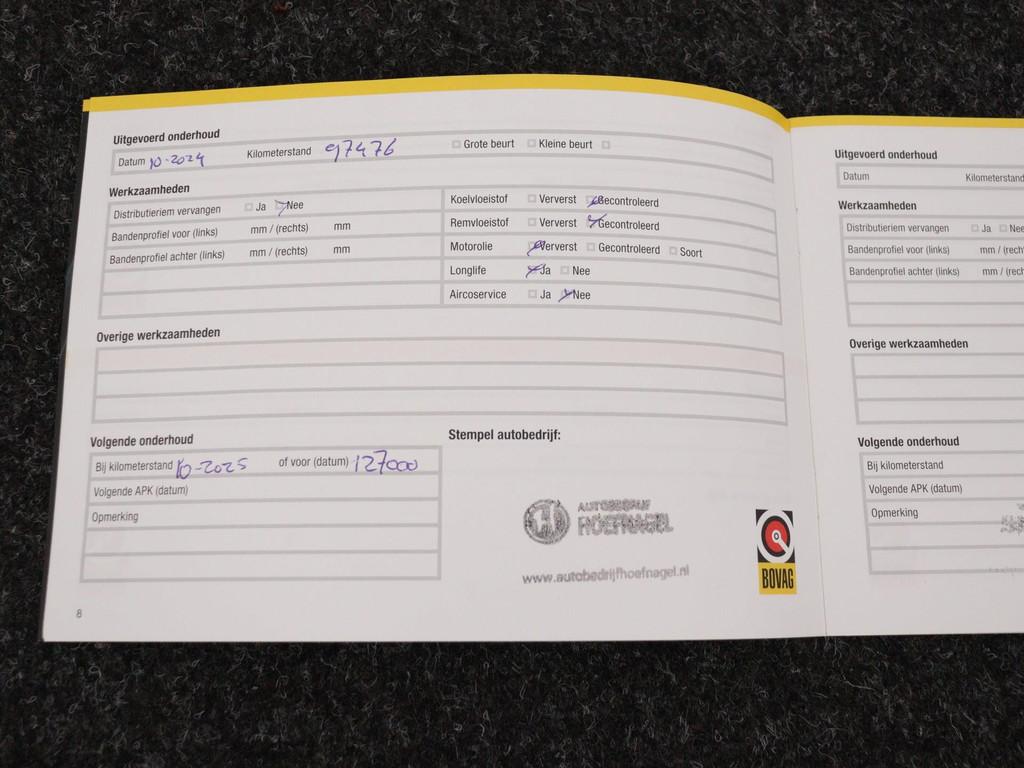 Uitgevoerd onderhoud
Datum 10-2024 Kilometerstand 97476 Grote beurt Kleine beurt
Werkzaamheden
Distributieriem vervangen Ja Nee
Bandenprofiel voor (links) mm / (rechts) mm
Bandenprofiel achter (links) mm / (rechts) mm
Koelvloeistof Ververst Gecontroleerd
Remvloeistof Ververst Gecontroleerd
Motorolie Ververst Gecontroleerd Soort
Longlife Ja Nee
Aircoservice Ja Nee
Overige werkzaamheden
Volgende onderhoud
Bij kilometerstand 10-2025 of voor (datum) 127000
Volgende APK (datum)
Opmerking
Stempel autobedrijf:
AUTOBEDRIJF
HOEFNAGEL
www.autobedrijfhoefnagel.nl
BOVAG
8
Uitgevoerd onderhoud
Datum Kilometerstand
Werkzaamheden
Distributieriem vervangen Ja Nee
Bandenprofiel voor (links) mm / (rech
Bandenprofiel achter (links) mm / (rech
Overige werkzaamheden
Volgende onderhoud
Bij kilometerstand
Volgende APK (datum)
Opmerking